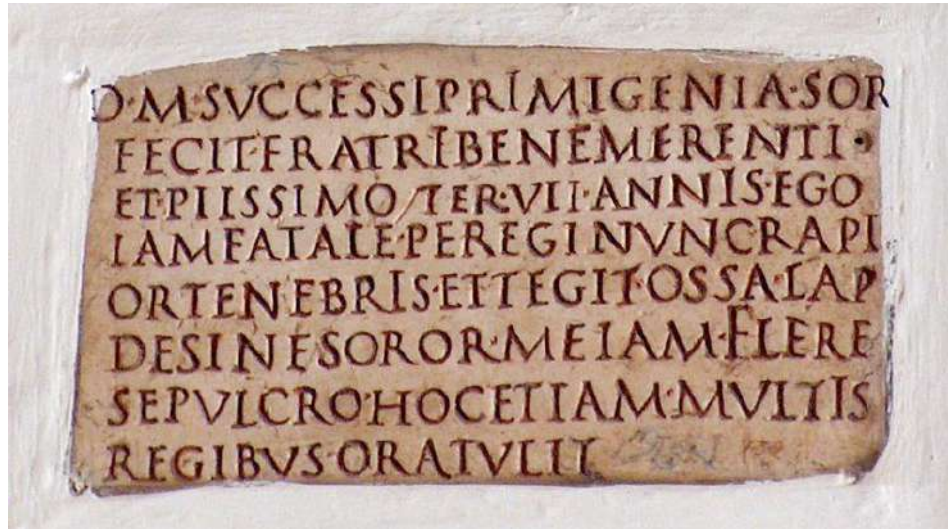 D·M·SVCCESSI PRIMIGENIA·SOR
FECIT·FRATRI BENEMERENTI·
ET·PIISSIMO TER·VII·ANNIS·EGO
IAM FATALE·PEREGI NVNC RAPI
OR TENEBRIS·ET TEGIT·OSSA·LAP
DESINE SOROR·ME IAM·FLERE
SEPVLCRO·HOC ETIAM·MVLTIS
REGIBVS·ORA TVLIT